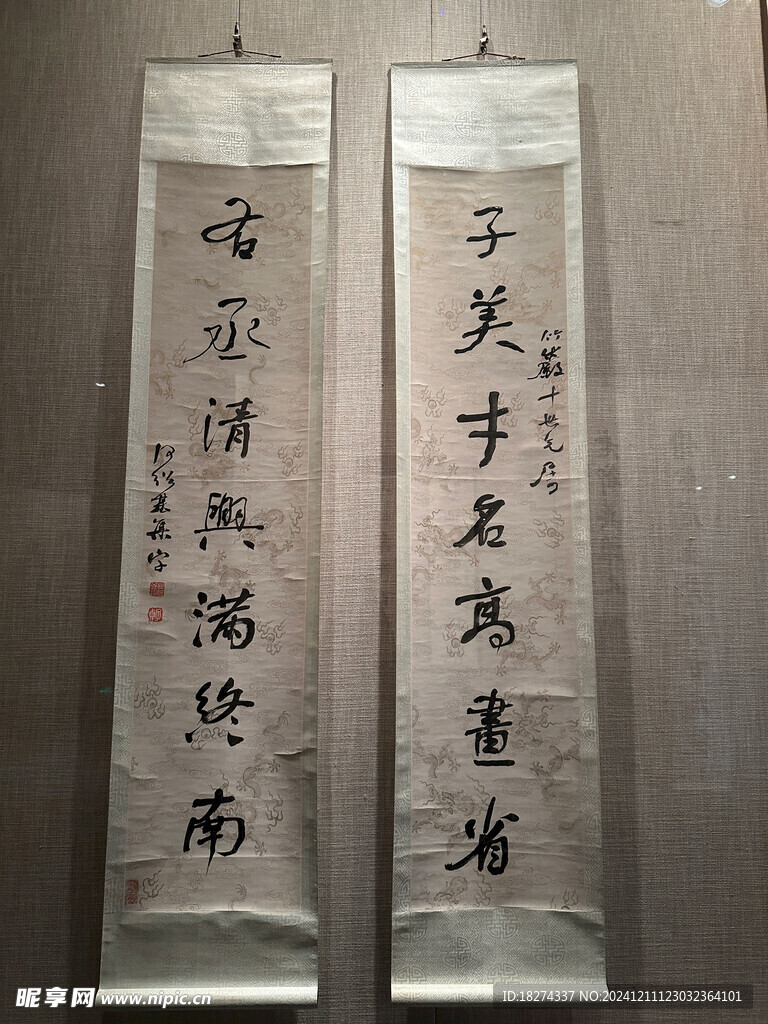 子美才名高畫省
竹嚴十世兄屬
右丞清興满終南
何紹基集字
昵享网 www.nipic.cn
ID:18274337 NO:20241211123032364101